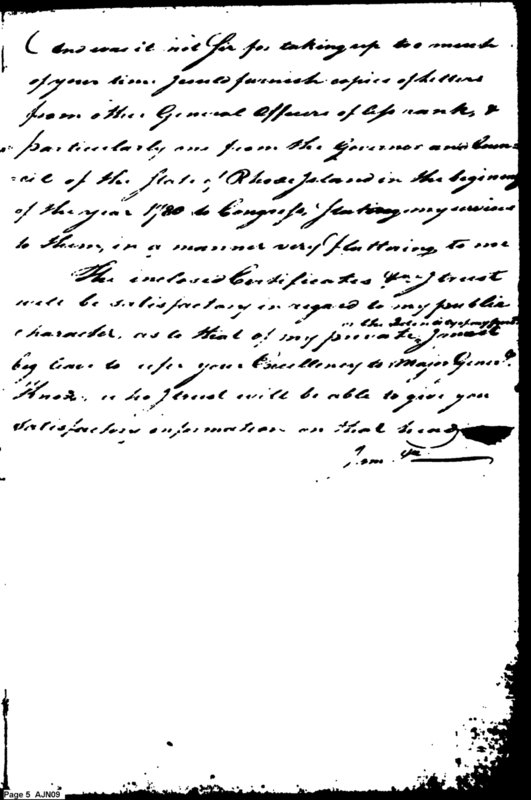 ( And was it not Sir for taking up too much
of your time I could furnish copies of letters
from other General Officers of less rank, &
particularly one from the Governor and Coun-
-cil of the State of Rhode Island in the begining
of the year 1780 to Congress, stating my services
to them, in a manner very flattering to me
The inclosed Certificates &c I trust
will be satisfactory in regard to my public
character, as to that of my private, I must
beg leave to refer your Excellency to Major Genl.
Knox. who I trust will be able to give you
satisfactory information on that head
I am &c
Page 5 AJN09